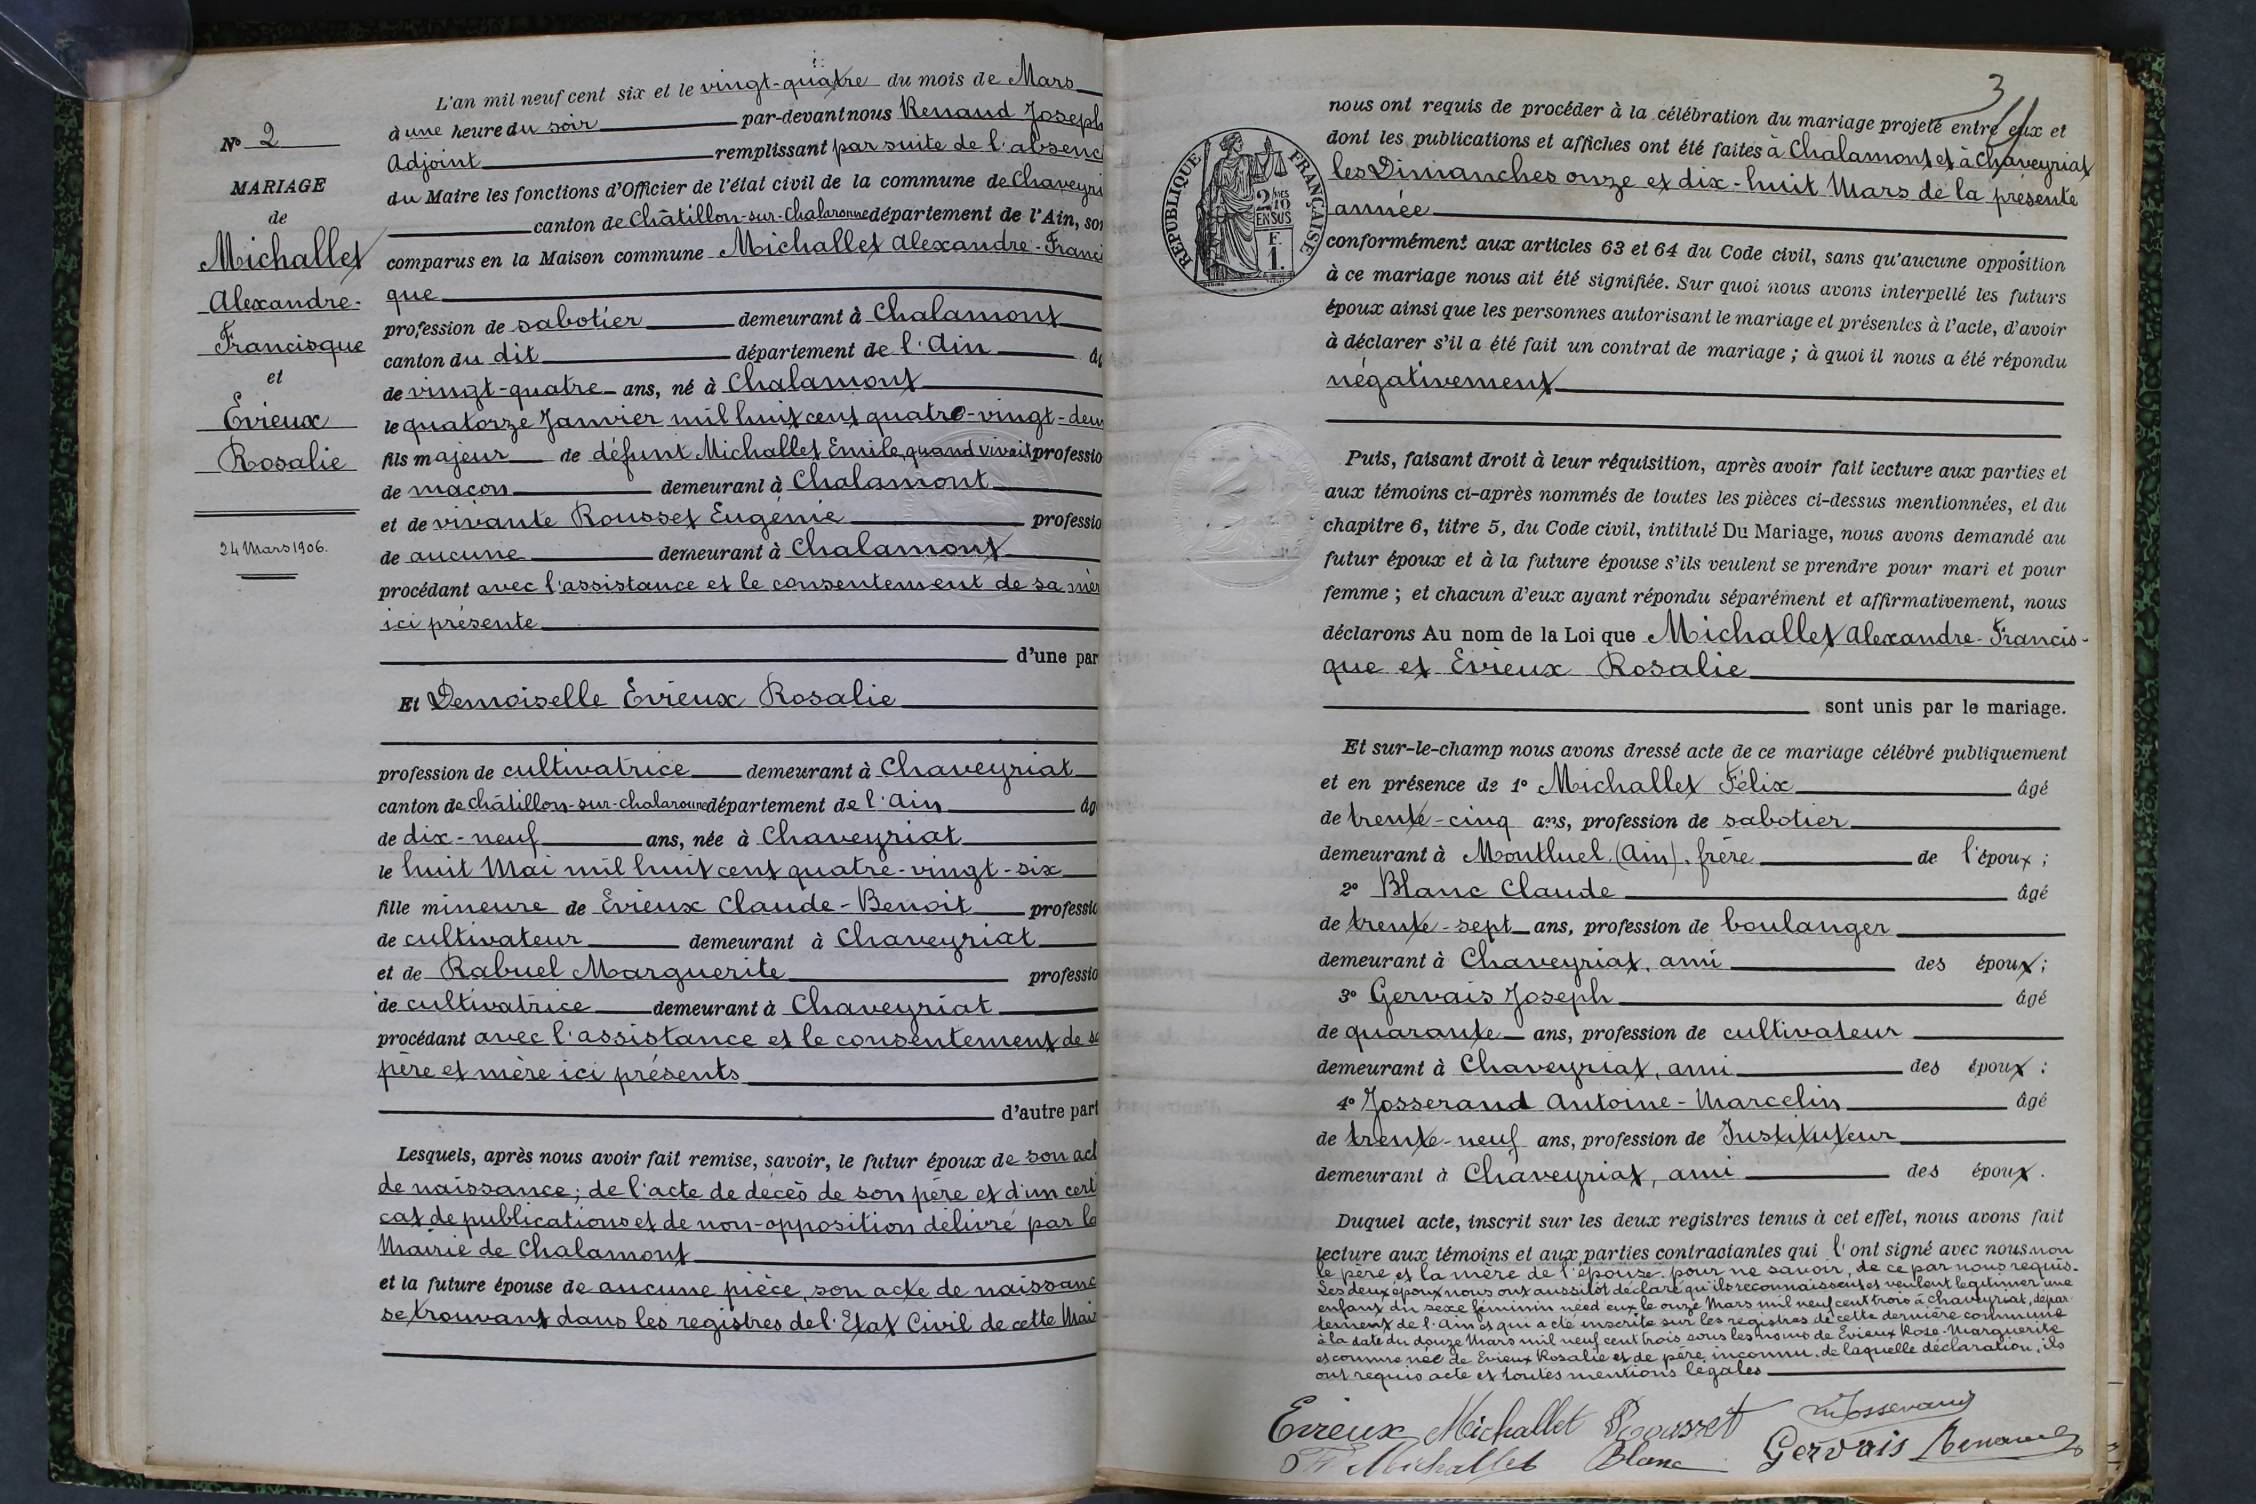 L'an mil neuf cent six et le vingt-quatre du mois de Mars
à une heure du soir par-devant nous Renaud Joseph
Adjoint remplissant par suite de l'absenc
du Maire les fonctions d'Officier de l'état civil de la commune de Chaveyri
canton de Châtillon-sur-Chalaronne département de l'Ain, son
comparus en la Maison commune Michallet Alexandre-Franci
que
profession de sabotier demeurant à Chalamont
canton du dit département de l'Ain âg
de vingt-quatre ans, né à Chalamont
le quatorze Janvier mil huit cent quatre-vingt-deux
fils majeur de défunt Michallet Emile, quand vivait professio
de maçon demeurant à Chalamont
et de vivante Rousset Eugénie professio
de aucune demeurant à Chalamont
procédant avec l'assistance et le consentement de sa mèr
ici présente
d'une par
Et Demoiselle Evieux Rosalie
profession de cultivatrice demeurant à Chaveyriat
canton de Châtillon-sur-Chalaronne département de l'Ain âg
de dix-neuf ans, née à Chaveyriat
le huit Mai mil huit cent quatre-vingt-six
fille mineure de Evieux Claude-Benoit professio
de cultivateur demeurant à Chaveyriat
et de Rabuel Marguerite professio
de cultivatrice demeurant à Chaveyriat
procédant avec l'assistance et le consentement de se
père et mère ici présents
d'autre part
Lesquels, après nous avoir fait remise, savoir, le futur époux de son act
de naissance; de l'acte de décès de son père et d'un certi
cat de publications et de non-opposition délivré par la
Mairie de Chalamont
et la future épouse de aucune pièce, son acte de naissanc
se trouvant dans les registres de l'Etat Civil de cette Mair
N° 2
MARIAGE
de
Michallet
Alexandre-
Francisque
et
Evieux
Rosalie
24 Mars 1906.
3
nous ont requis de procéder à la célébration du mariage projeté entre eux et
dont les publications et affiches ont été faites à Chalamont et à Chaveyriat
les Dimanches onze et dix-huit Mars de la présente
année
conformément aux articles 63 et 64 du Code civil, sans qu'aucune opposition
à ce mariage nous ait été signifiée. Sur quoi nous avons interpellé les futurs
époux ainsi que les personnes autorisant le mariage et présentes à l'acte, d'avoir
à déclarer s'il a été fait un contrat de mariage ; à quoi il nous a été répondu
négativement
RÉPUBLIQUE FRANÇAISE
2/10 EN SUS
F.
1.
Puis, faisant droit à leur réquisition, après avoir fait lecture aux parties et
aux témoins ci-après nommés de toutes les pièces ci-dessus mentionnées, et du
chapitre 6, titre 5, du Code civil, intitulé Du Mariage, nous avons demandé au
futur époux et à la future épouse s'ils veulent se prendre pour mari et pour
femme ; et chacun d'eux ayant répondu séparément et affirmativement, nous
déclarons Au nom de la Loi que Michallet Alexandre-Francis-
que et Evieux Rosalie
sont unis par le mariage.
Et sur-le-champ nous avons dressé acte de ce mariage célébré publiquement
et en présence de 1° Michallet Félix âgé
de trente-cinq ans, profession de sabotier
demeurant à Montluel (Ain), frère de l'époux ;
2° Blanc Claude âgé
de trente-sept ans, profession de boulanger
demeurant à Chaveyriat, ami des époux ;
3° Gervais Joseph âgé
de quarante ans, profession de cultivateur
demeurant à Chaveyriat, ami des époux :
4° Josserand Antoine-Marcelin âgé
de trente-neuf ans, profession de Instituteur
demeurant à Chaveyriat, ami des époux.
Duquel acte, inscrit sur les deux registres tenus à cet effet, nous avons fait
lecture aux témoins et aux parties contractantes qui l'ont signé avec nous, non
le père et la mère de l'épouse, pour ne savoir, de ce par nous requis.
Les deux époux nous ont aussitôt déclaré qu'ils reconnaissent et veulent légitimer une
enfant du sexe féminin née d'eux le onze Mars mil neuf cent trois à Chaveyriat, dépar-
tement de l'Ain et qui a été inscrite sur les registres de cette dernière commune
à la date du douze Mars mil neuf cent trois sous les noms de Evieux Rose-Marguerite
et comme née de Evieux Rosalie et de père inconnu. de laquelle déclaration, ils
ont requis acte et toutes mentions légales
Evieux Michallet Rousset Josserand
F Michallet Blanc Gervais Renaud